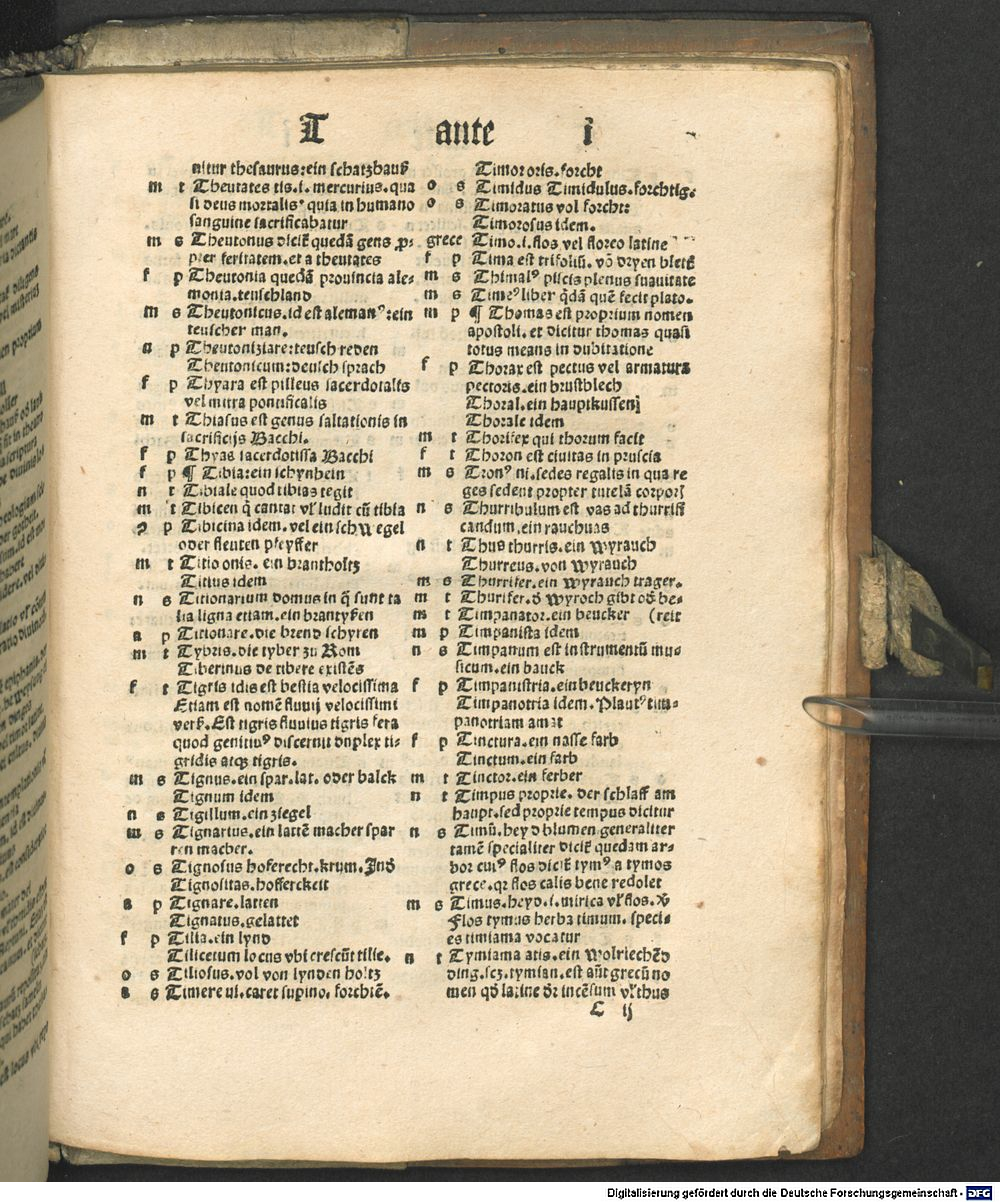 T ante i
nitur thesaurus:ein schatzhauß
m t Theutates tis.i. mercurius. qua
si deus mortalis⁹ quia in humano
sanguine sacrificabatur
m s Theutonus dicit͛ quedā gens ꝓ-
pter feritatem. et a theutates
f p Theutonia quedā prouincia ale-
monia. teuschland
m s Theutonicus. id est aleman⁹:ein
teuscher man.
a p Theutoniziare:teusch reden
Theutonicum:deusch sprach
f p Thyara est pilleus sacerdotalis
vel mitra pontificalis
m t Thiasus est genus saltationis in
sacrificijs Bacchi.
f p Thyas sacerdotissa Bacchi
f p ¶ Tibia:ein schynbein
n t Tibiale quod tibias tegit
m t Tibicen q̄ cantat vl͛ ludit cū tibia
p Tibicina idem. vel ein schwegel
oder fleuten pfeyffer
m t Titio onis. ein brantholtz
Titius idem
n s Titionarium domus in q̄ sunt ta
lia ligna etiam. ein brantyßen
a p Titionare. die brend schyren
m t Tybris. die tyber zu Rom
Tiberinus de tibere existēs
f t Tigris idis est bestia velocissima
Etiam est nomē fluuij velocissimi
vers͛. Est tigris fluuius tigris fera
quod genitiu⁹ discernit duplex ti-
gridis atqꝫ tigris.
m s Tignus. ein spar. lat. oder balck
Tignum idem
n s Tigillum. ein ziegel
m s Tignarius. ein lattē macher spar
ren macher.
o s Tignosus hoferecht. krum. Ind͛
Tignositas. hofferckeit
a p Tignare. latten
Tignatus. gelattet
f p Tilia. ein lynd
Tilicetum locus vbi crescūt tilie.
o s Tiliosus. vol von lynden holtz
a s Timere ui. caret supino. forchtē.
Timor oris. forcht
o s Timidus Timidulus. forchtig.
o s Timoratus vol forcht:
Timorosus idem.
grece Timo. i. flos vel floreo latine
f p Tima est trifoliū. vō dryen blett͛
m s Thimal⁹ piscis plenus suauitate
m s Time⁹ liber q̄dā quē fecit plato.
m p ¶ Thomas est proprium nomen
apostoli. et dicitur thomas quasi
totus means in dubitatione
f p Thorax est pectus vel armatura
pectoris. ein brustblech
Thoral. ein hauptkussen
Thorale idem
m t Thorifex qui thorum facit
f t Thoron est ciuitas in pruscia
m s Tron⁹ ni. sedes regalis in qua re
ges sedent propter tutelā corporꝭ
n s Thurribulum est vas ad thurrifi
candum. ein rauchuas
n t Thus thurris. ein wyrauch
Thurreus. von wyrauch
m s Thurrifer. ein wyrauch trager.
m t Thurifer. d͛ wyroch gibt od͛ be-
m t Timpanator. ein beucker (reit
m p Timpanista idem
n s Timpanum est instrumentū mu-
sicum. ein bauck
f p Timpanistria. ein beuckeryn
Timpanotria idem. Plaut⁹ tim-
panotriam amat
f p Tinctura. ein nasse farb
Tinctum. ein farb
m t Tinctor. ein ferber
n t Timpus proprie. der schlaff am
haupt. sed proprie tempus dicitur
n s Timū. heyd blumen generaliter
tamē specialiter dicit͛ quedam ar-
bor cui⁹ flos dicit͛ tym⁹ a tymos
grece. qꝛ flos calis bene redolet
m s Timus. heyd. i. mirica vl͛ flos. v͛
Flos tymus herba timum. speci-
es timiama vocatur
n t Tymiama atis. ein wolriechēd
ding. scꝫ. tymian. est aūt grecū no
men qd͛ latine dr̄ incēsum vl͛ thus
C ij
Digitalisierung gefördert durch die Deutsche Forschungsgemeinschaft - DFG